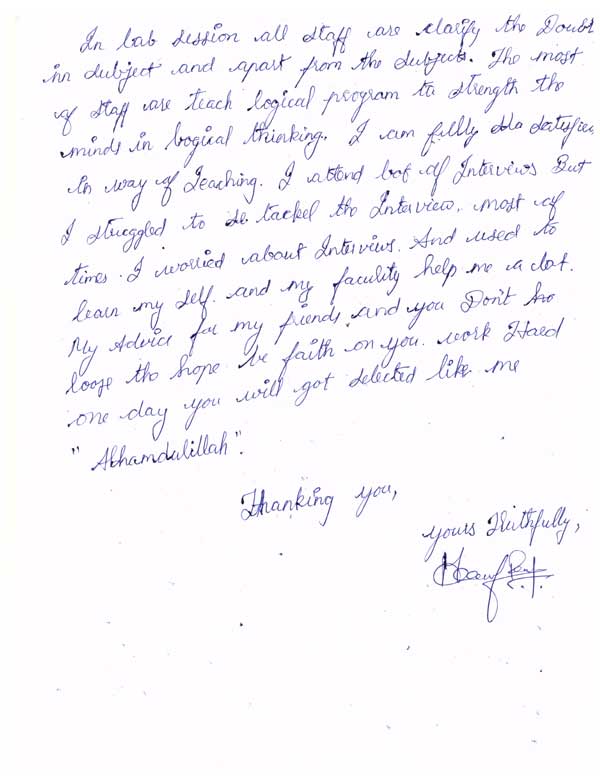 In lab session all staff are clarify the Doubt
in subject and apart from the subjects. The most
of staff are teach logical program to strength the
minds in logical thinking. I am fully satisfies
in way of Teaching. I attend lot of Interviws But
I struggled to tackel the Interview. most of
times. I worried about Interviws. And used to
learn my self. and my faculty help me a lot.
My Advice for my friends and you Don't
loose the hope be faith on you. work Hard
one day you will got selected like me
" Alhamdulillah".
Thanking you,
yours Faithfully,